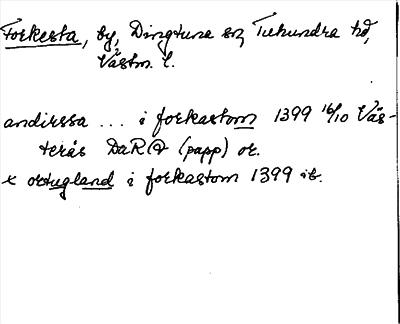 Forkesta, by, Dingtuna sn, Tuhundra hd,
Västm. l.
andirssa ... i forkastom 1399 16/10 Väs-
terås DaRO (papp) or.
x ortugland i forkastom 1399 ib.